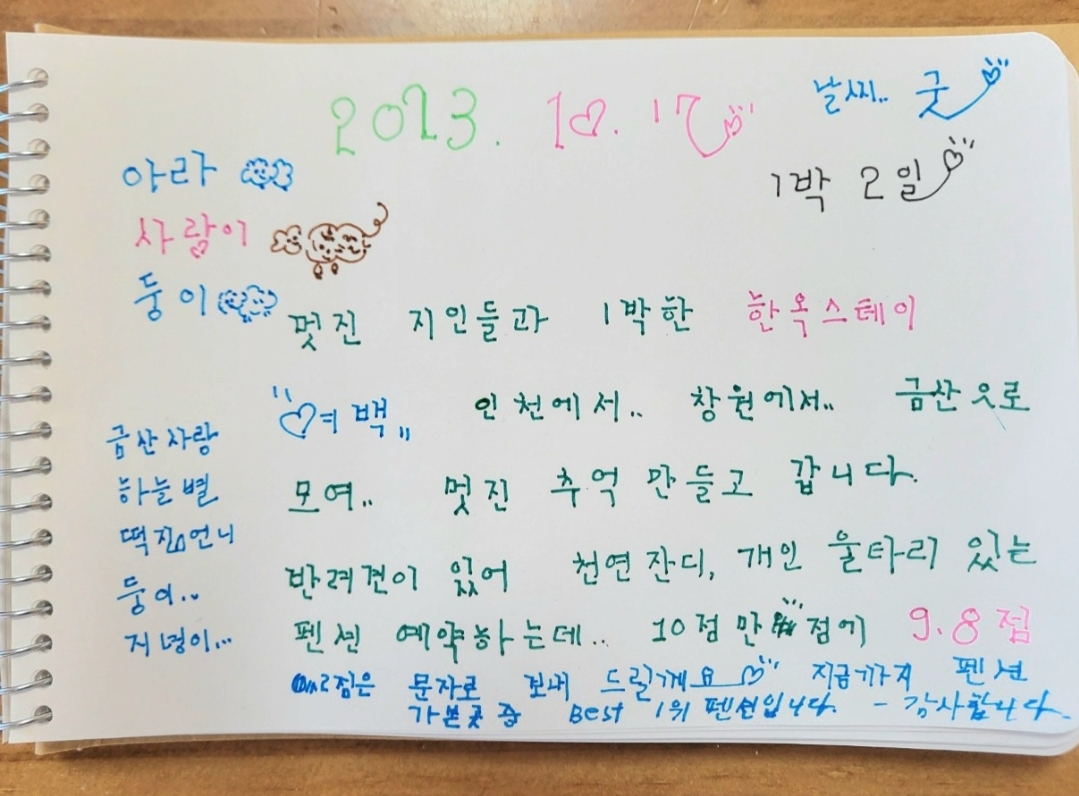 2023. 10. 17
날씨.. 굿
1박 2일
아라
사랑이
둥이
멋진 지인들과 1박한 한옥스테이
"여백" 인천에서.. 창원에서.. 금산으로
모여.. 멋진 추억 만들고 갑니다.
반려견이 있어 천연잔디, 개인 울타리 있는
펜션 예약하는데.. 10점 만점에 9.8점
0.2점은 문자로 보내 드릴게요 지금까지 펜션
가본곳 중 Best 1위 펜션입니다. - 감사합니다.
금산사랑
하늘별
떡진언니
둥이..
지녕이...